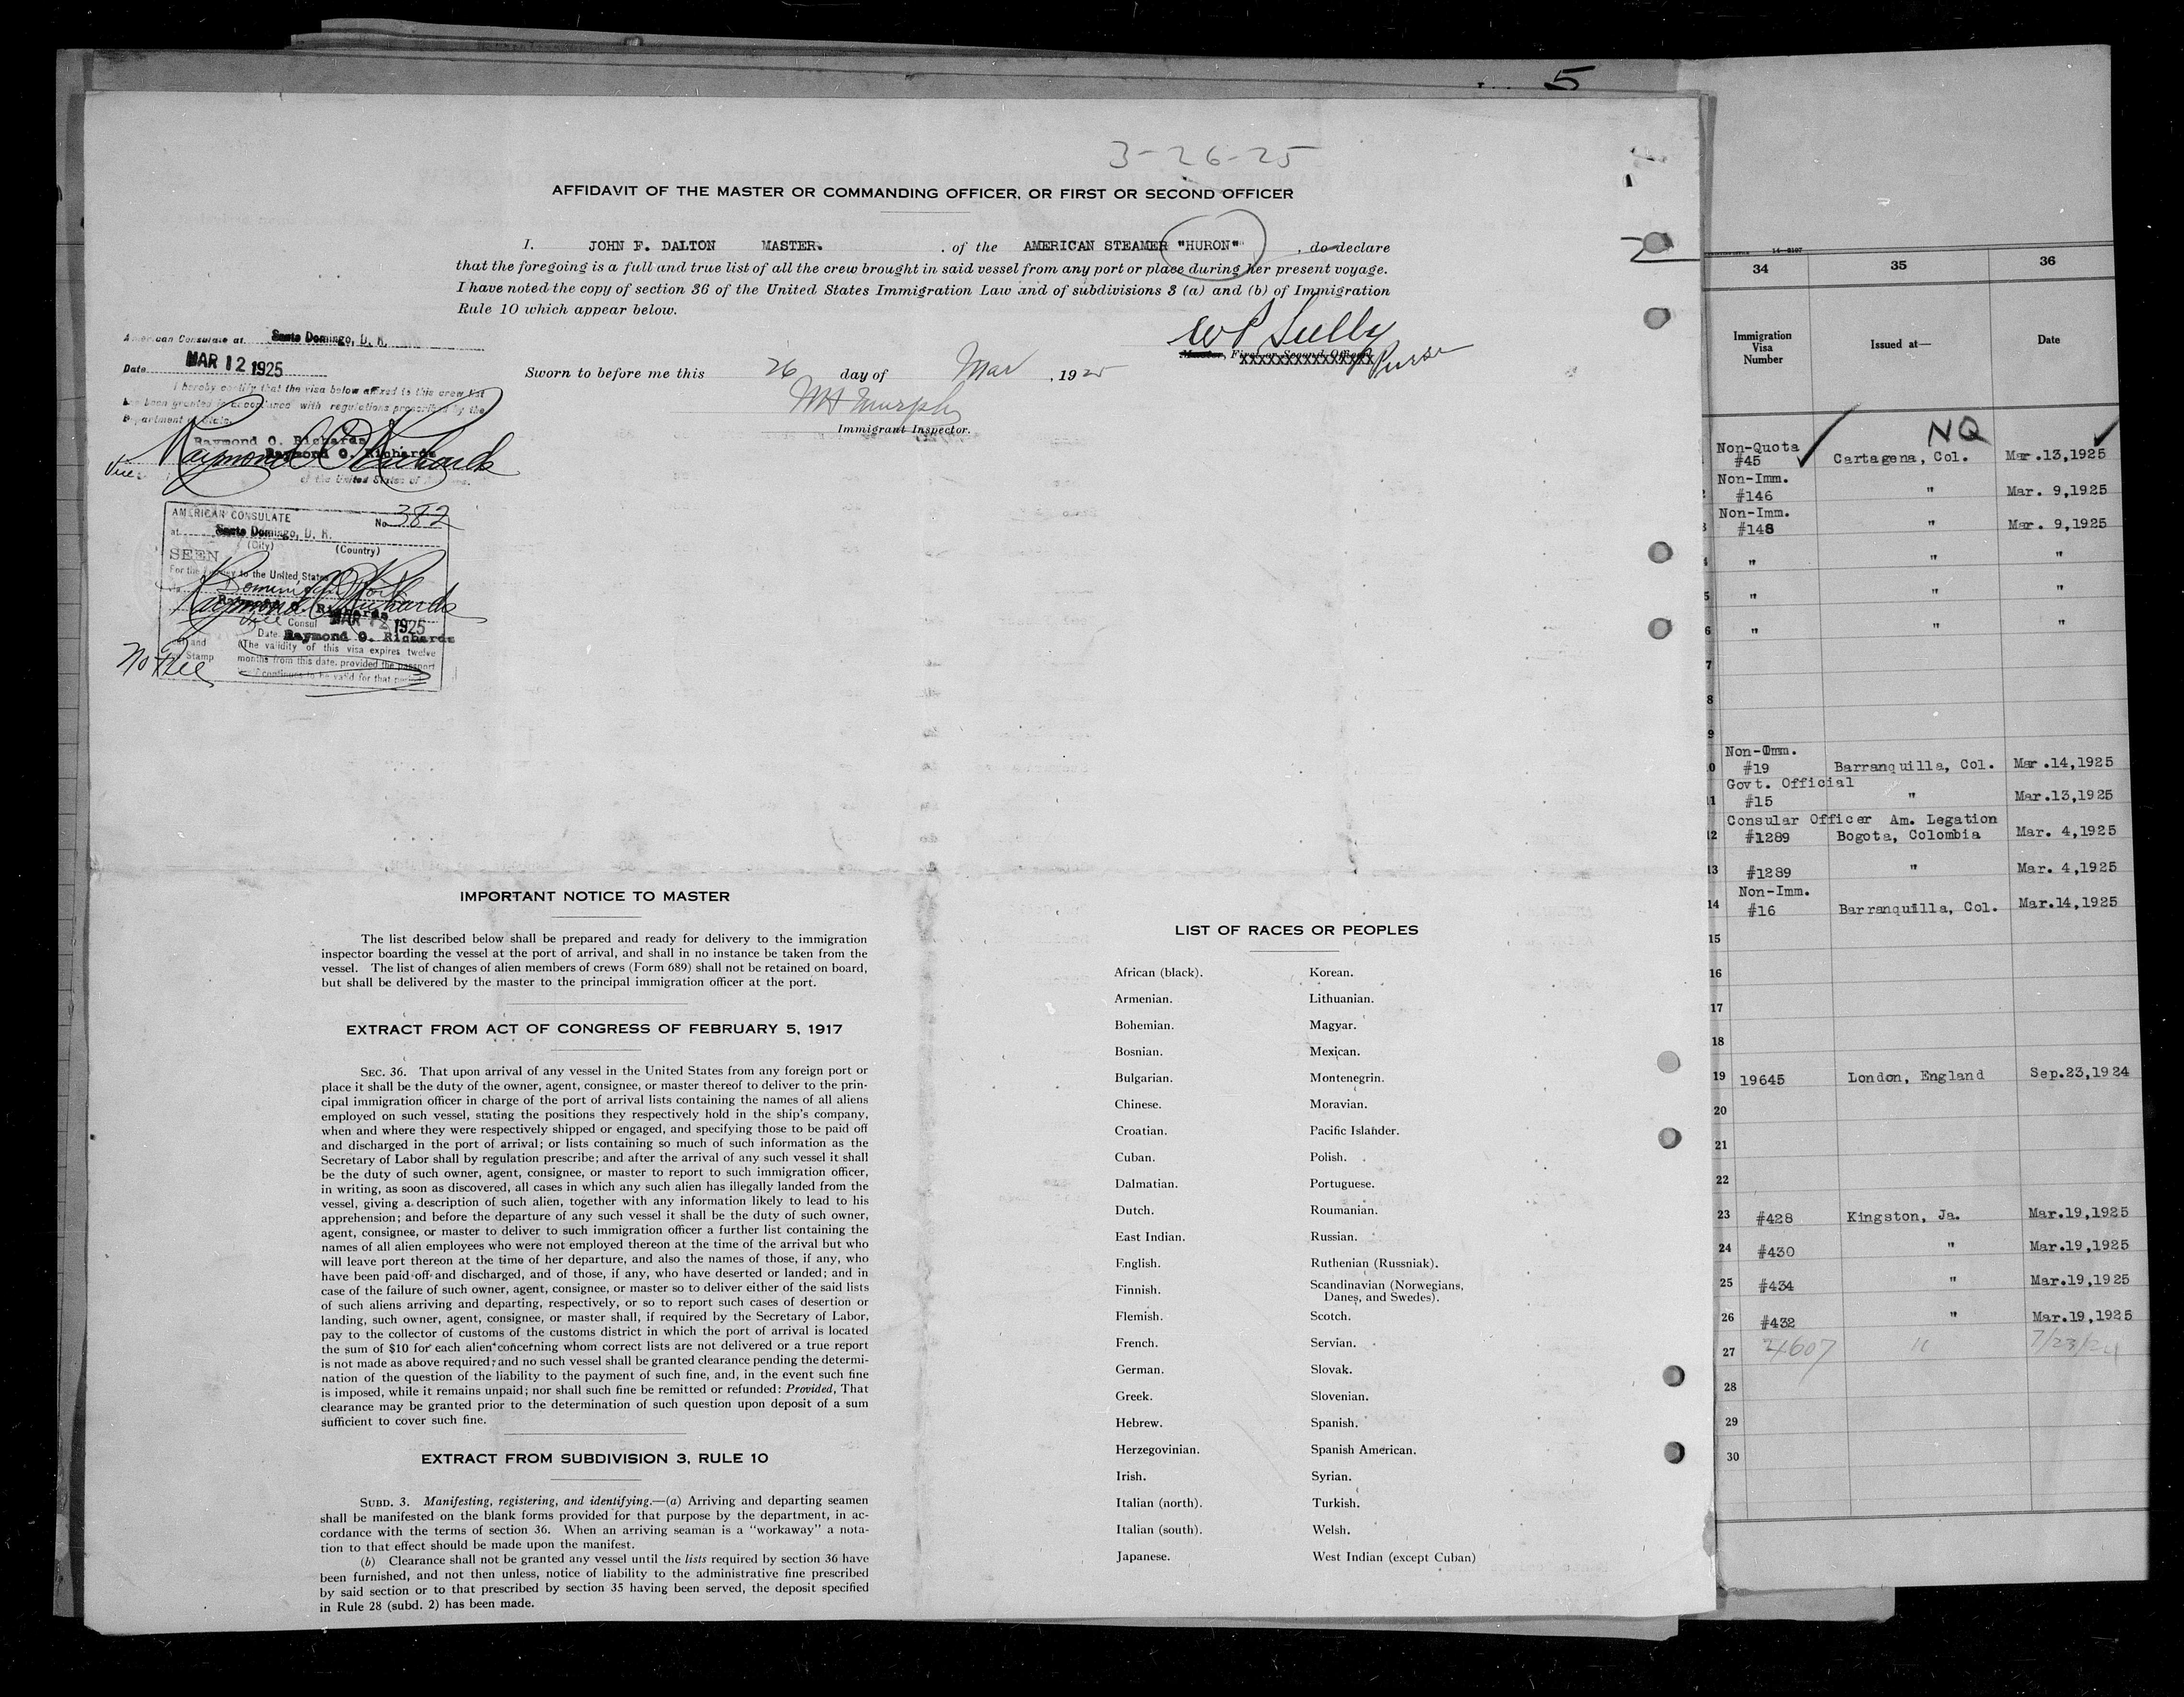 5
3-26-25
AFFIDAVIT OF THE MASTER OR COMMANDING OFFICER, OR FIRST OR SECOND OFFICER
I, JOHN F. DALTON MASTER. , of the AMERICAN STEAMER "HURON" , do declare
that the foregoing is a full and true list of all the crew brought in said vessel from any port or place during her present voyage.
I have noted the copy of section 36 of the United States Immigration Law and of subdivisions 3 (a) and (b) of Immigration
Rule 10 which appear below.
Master, First or Second Officer. Purser
Sworn to before me this 26 day of Mar , 1925
WH Murphy
Immigrant Inspector.
American Consulate at Santo Domingo, D. R.
Date MAR 12 1925
I hereby certify that the visa below affixed to this crew list
has been granted in accordance with regulations prescribed by the
Department of State.
Raymond O. Richards
Raymond O. Richards
Vice
of the United States of
AMERICAN CONSULATE
No 382
at Santo Domingo, D. R.
(City) (Country)
SEEN
For the journey to the United States
Raymond O. Richards
Vice Consul
Date MAR 12 1925
Raymond O. Richards
(The validity of this visa expires twelve
months from this date, provided the passport
continues to be valid for that period
and
Stamp
No Fee
IMPORTANT NOTICE TO MASTER
The list described below shall be prepared and ready for delivery to the immigration
inspector boarding the vessel at the port of arrival, and shall in no instance be taken from the
vessel. The list of changes of alien members of crews (Form 689) shall not be retained on board,
but shall be delivered by the master to the principal immigration officer at the port.
EXTRACT FROM ACT OF CONGRESS OF FEBRUARY 5, 1917
SEC. 36. That upon arrival of any vessel in the United States from any foreign port or
place it shall be the duty of the owner, agent, consignee, or master thereof to deliver to the prin-
cipal immigration officer in charge of the port of arrival lists containing the names of all aliens
employed on such vessel, stating the positions they respectively hold in the ship's company,
when and where they were respectively shipped or engaged, and specifying those to be paid off
and discharged in the port of arrival; or lists containing so much of such information as the
Secretary of Labor shall by regulation prescribe; and after the arrival of any such vessel it shall
be the duty of such owner, agent, consignee, or master to report to such immigration officer,
in writing, as soon as discovered, all cases in which any such alien has illegally landed from the
vessel, giving a description of such alien, together with any information likely to lead to his
apprehension; and before the departure of any such vessel it shall be the duty of such owner,
agent, consignee, or master to deliver to such immigration officer a further list containing the
names of all alien employees who were not employed thereon at the time of the arrival but who
will leave port thereon at the time of her departure, and also the names of those, if any, who
have been paid off and discharged, and of those, if any, who have deserted or landed; and in
case of the failure of such owner, agent, consignee, or master so to deliver either of the said lists
of such aliens arriving and departing, respectively, or so to report such cases of desertion or
landing, such owner, agent, consignee, or master shall, if required by the Secretary of Labor,
pay to the collector of customs of the customs district in which the port of arrival is located
the sum of $10 for each alien concerning whom correct lists are not delivered or a true report
is not made as above required; and no such vessel shall be granted clearance pending the determi-
nation of the question of the liability to the payment of such fine, and, in the event such fine
is imposed, while it remains unpaid; nor shall such fine be remitted or refunded: Provided, That
clearance may be granted prior to the determination of such question upon deposit of a sum
sufficient to cover such fine.
EXTRACT FROM SUBDIVISION 3, RULE 10
SUBD. 3. Manifesting, registering, and identifying.—(a) Arriving and departing seamen
shall be manifested on the blank forms provided for that purpose by the department, in ac-
cordance with the terms of section 36. When an arriving seaman is a "workaway" a nota-
tion to that effect should be made upon the manifest.
(b) Clearance shall not be granted any vessel until the lists required by section 36 have
been furnished, and not then unless, notice of liability to the administrative fine prescribed
by said section or to that prescribed by section 35 having been served, the deposit specified
in Rule 28 (subd. 2) has been made.
LIST OF RACES OR PEOPLES
African (black). Korean.
Armenian. Lithuanian.
Bohemian. Magyar.
Bosnian. Mexican.
Bulgarian. Montenegrin.
Chinese. Moravian.
Croatian. Pacific Islander.
Cuban. Polish.
Dalmatian. Portuguese.
Dutch. Roumanian.
East Indian. Russian.
English. Ruthenian (Russniak).
Finnish. Scandinavian (Norwegians,
Danes, and Swedes).
Flemish. Scotch.
French. Servian.
German. Slovak.
Greek. Slovenian.
Hebrew. Spanish.
Herzegovinian. Spanish American.
Irish. Syrian.
Italian (north). Turkish.
Italian (south). Welsh.
Japanese. West Indian (except Cuban)
34 35 36
Immigration
Visa
Number
Issued at—
Date
NQ
Non-Quota
#45 Cartagena, Col. Mar.13,1925
Non-Imm.
#146 " Mar. 9,1925
Non-Imm.
#148 " Mar. 9,1925
" " "
5 " " "
6 " " "
7
8
9
Non-Imm.
#19 Barranquilla, Col. Mar.14,1925
Govt. Official
#15 " Mar.13,1925
Consular Officer Am. Legation
12 #1289 Bogota, Colombia Mar. 4,1925
13 #1289 " Mar. 4,1925
Non-Imm.
14 #16 Barranquilla, Col. Mar.14,1925
15
16
17
18
19 19645 London, England Sep.23,1924
20
21
22
23 #428 Kingston, Ja. Mar.19,1925
24 #430 " Mar.19,1925
25 #434 " Mar.19,1925
26 #432 " Mar.19,1925
27 4607 " 7/23/24
28
29
30